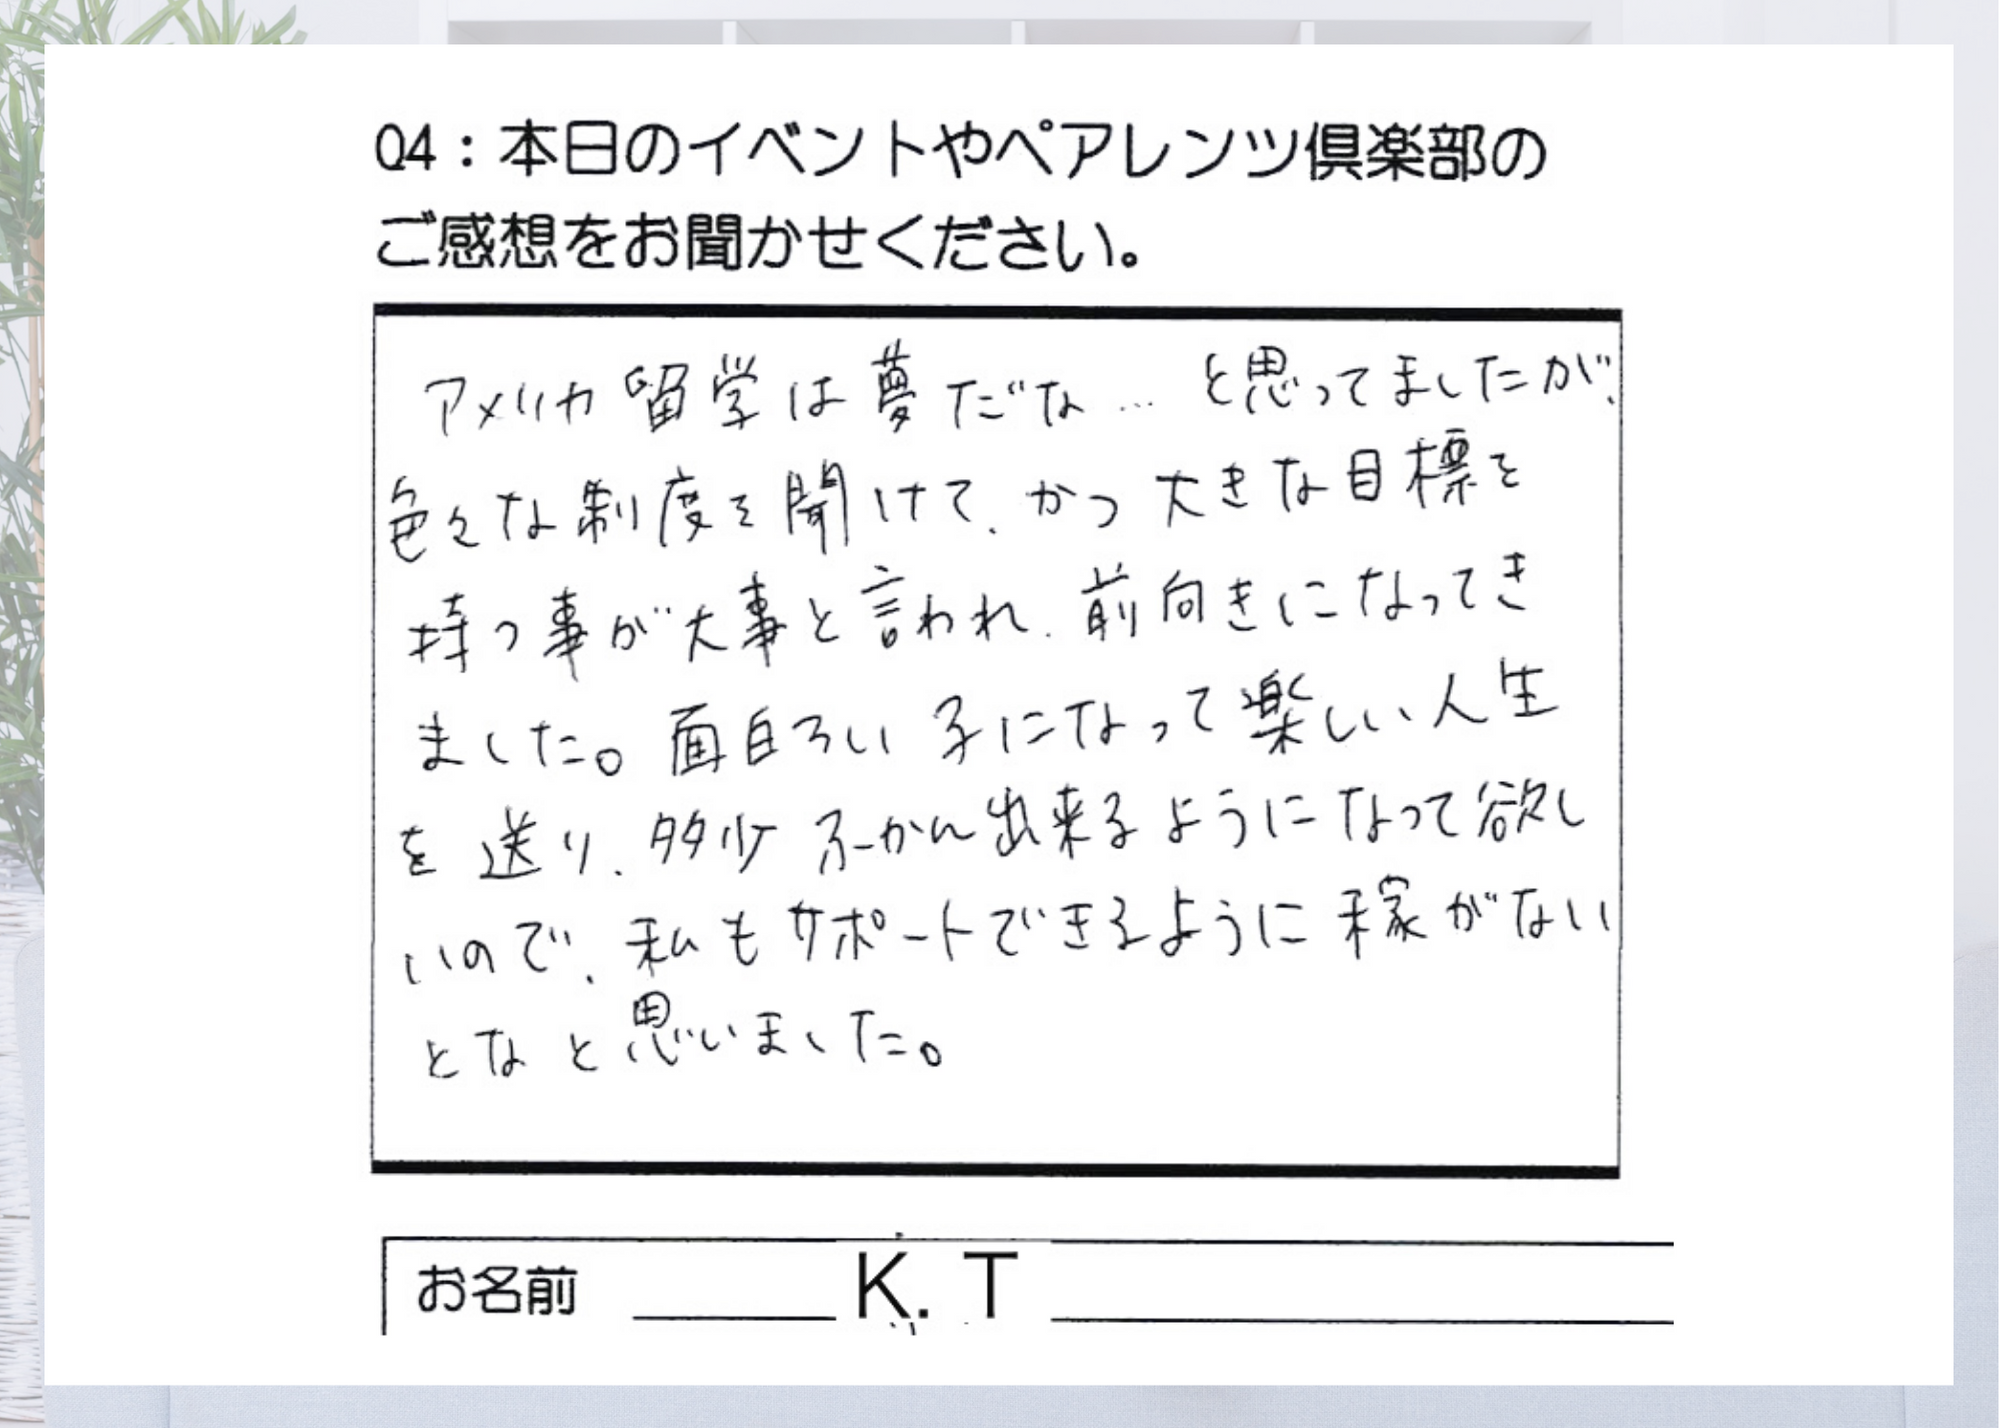 Q4：本日のイベントやペアレンツ倶楽部の
ご感想をお聞かせください。
アメリカ留学は夢だな…と思ってましたが、
色々な制度を聞けて、かつ大きな目標を
持つ事が大事と言われ、前向きになってき
ました。面白ろい子になって楽しい人生
を送り、多少ふーかん出来るようになって欲し
いので、私もサポートできるように稼がない
となと思いました。
お名前 K. T